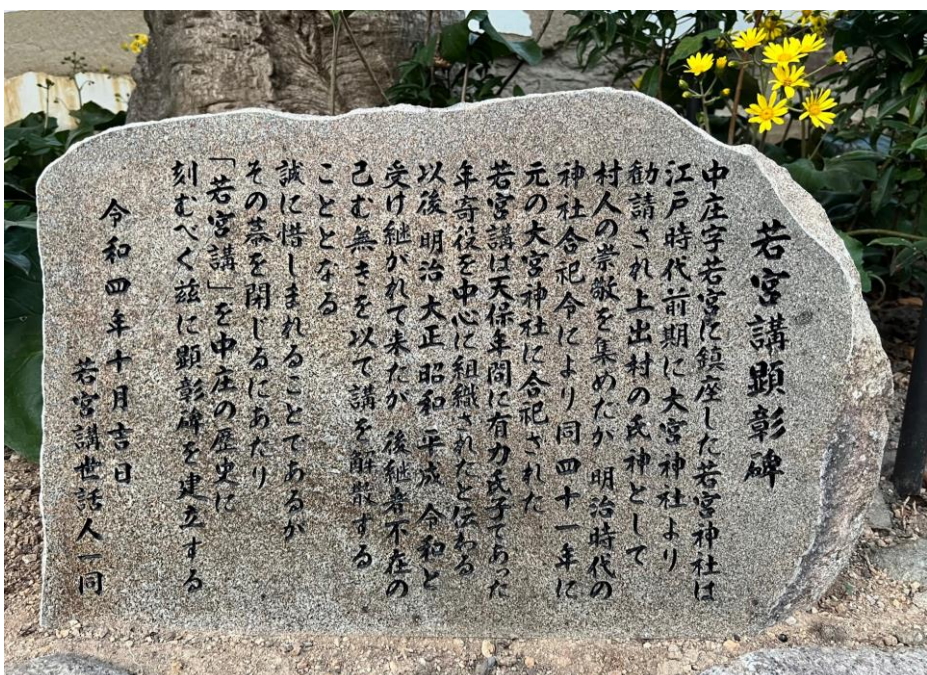 若宮講顕彰碑
中庄字若宮に鎮座した若宮神社は
江戸時代前期に大宮神社より
勧請され上出村の氏神として
村人の崇敬を集めたが 明治時代の
神社合祀令により同四十一年に
元の大宮神社に合祀された
若宮講は天保年間に有力氏子であった
年寄役を中心に組織されたと伝わる
以後明治 大正 昭和 平成 令和と
受け継がれて来たが 後継者不在の
已む無きを以て講を解散する
こととなる
誠に惜しまれることであるが
その幕を閉じるにあたり
「若宮講」を中庄の歴史に
刻むべく茲に顕彰碑を建立する
令和四年十月吉日
若宮講世話人一同